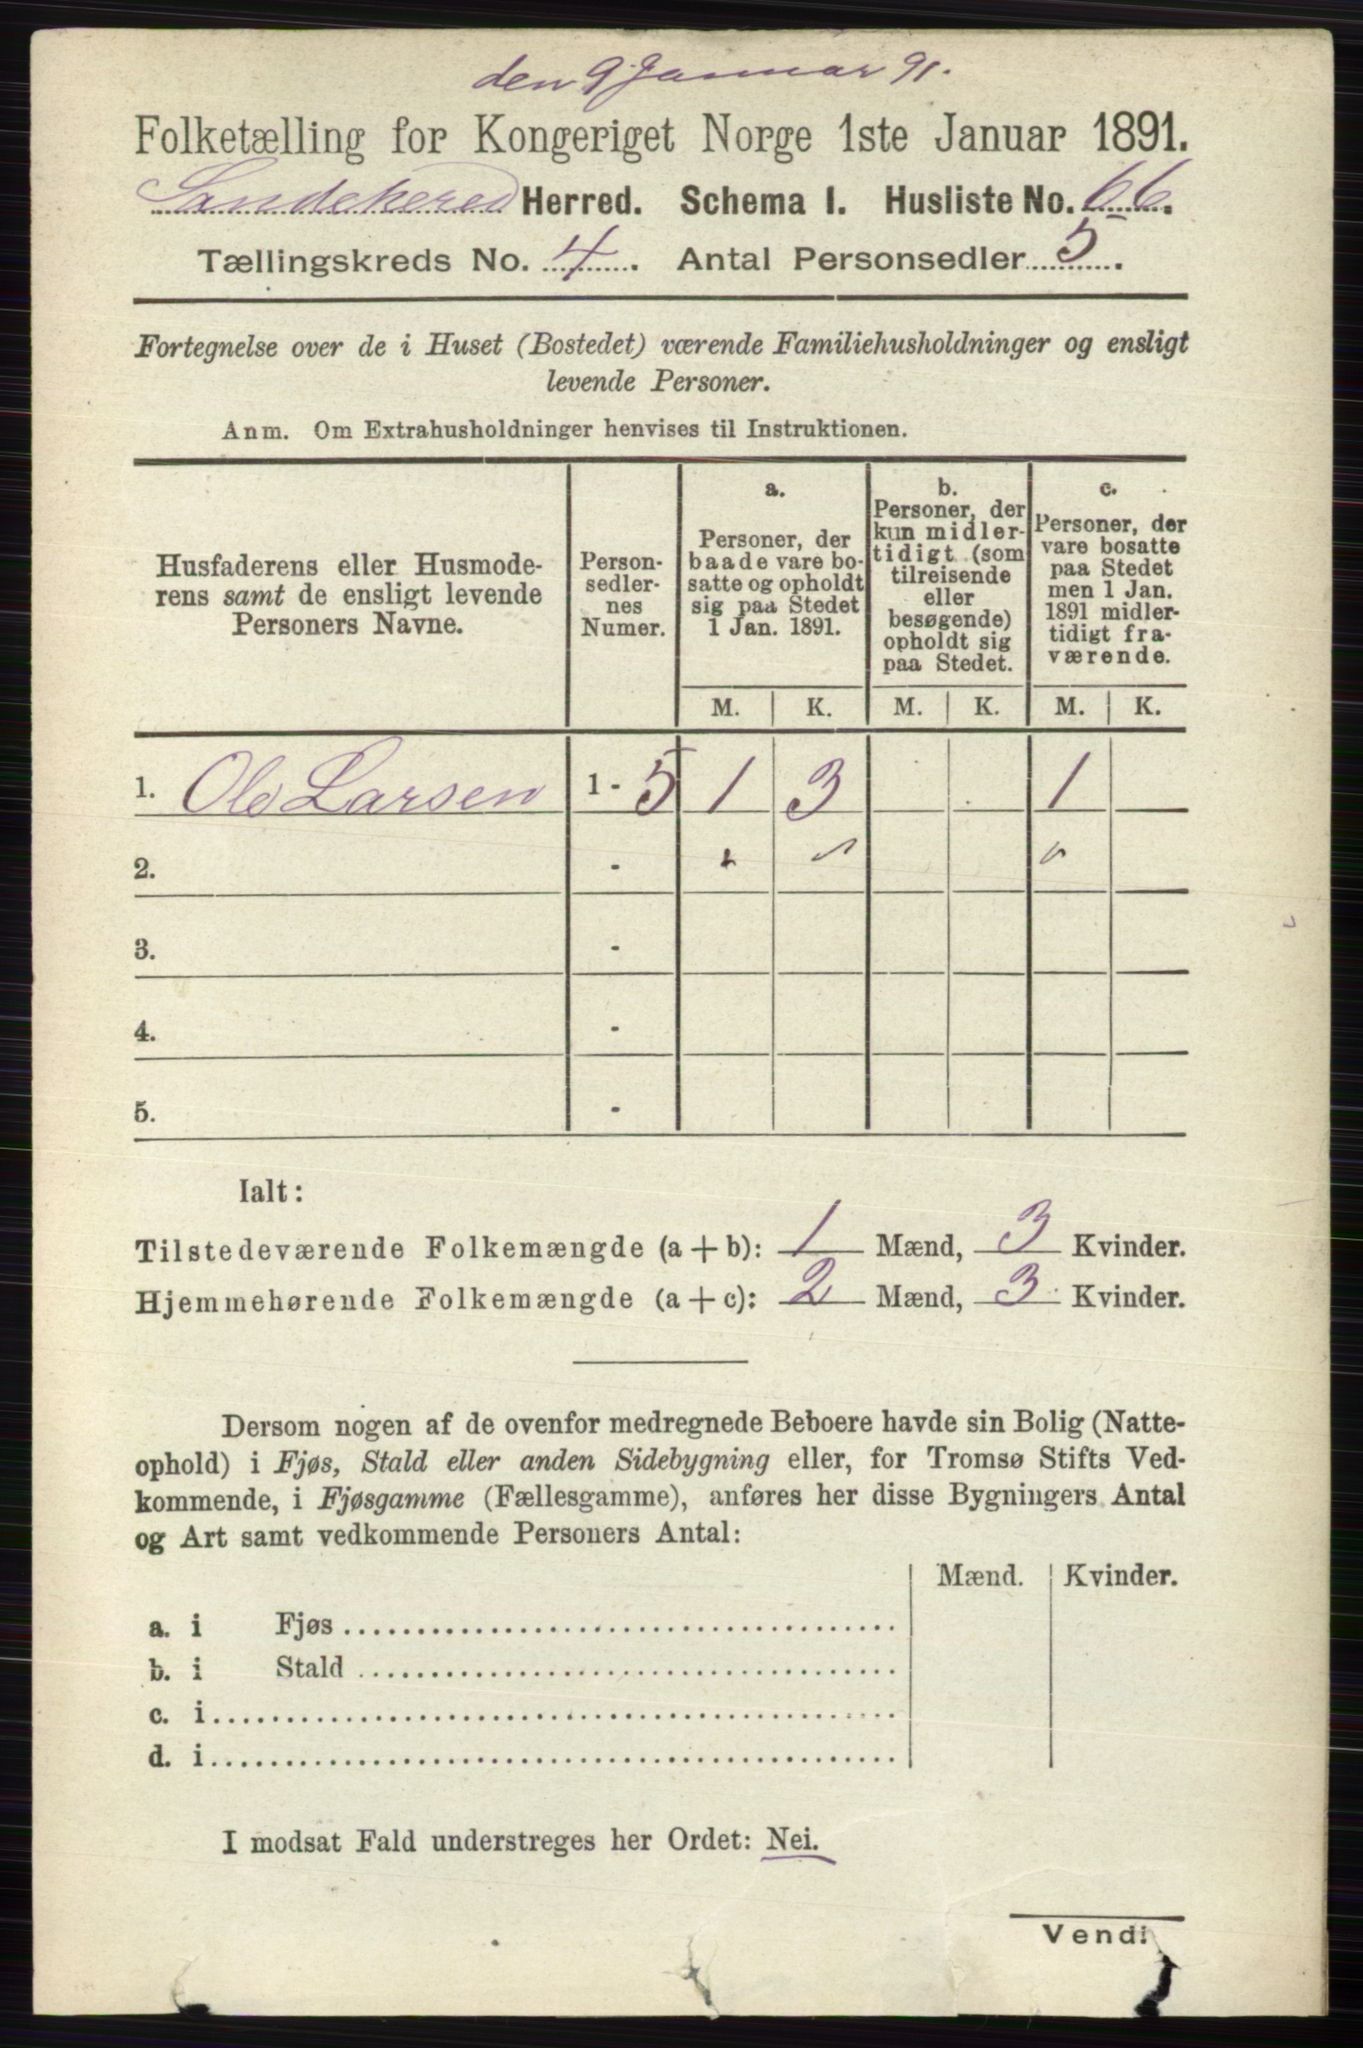 den 9 Januar 91.
Folketælling for Kongeriget Norge 1ste Januar 1891.
Sandehered Herred. Schema I. Husliste No. 66.
Tællingskreds No. 4. Antal Personsedler 5.
Fortegnelse over de i Huset (Bostedet) værende Familiehusholdninger og ensligt
levende Personer.
Anm. Om Extrahusholdninger henvises til Instruktionen.
Husfaderens eller Husmode-
rens samt de ensligt levende
Personers Navne.
Person-
sedler-
nes
Numer.
a.
Personer, der
baade vare bo-
satte og opholdt
sig paa Stedet
1 Jan. 1891.
b.
Personer, der
kun midler-
tidigt (som
tilreisende
eller
besøgende)
opholdt sig
paa Stedet.
c.
Personer, der
vare bosatte
paa Stedet
men 1 Jan.
1891 midler-
tidigt fra-
værende.
M. K. M. K. M. K.
1. Ole Larsen 1 - 5 1 3 1
2. -
3. -
4. -
5. -
Ialt:
Tilstedeværende Folkemængde (a + b): 1 Mænd, 3 Kvinder.
Hjemmehørende Folkemængde (a + c): 2 Mænd, 3 Kvinder.
Dersom nogen af de ovenfor medregnede Beboere havde sin Bolig (Natte-
ophold) i Fjøs, Stald eller anden Sidebygning eller, for Tromsø Stifts Ved-
kommende, i Fjøsgamme (Fællesgamme), anføres her disse Bygningers Antal
og Art samt vedkommende Personers Antal:
Mænd. Kvinder.
a. i Fjøs
b. i Stald
c. i
d. i
I modsat Fald understreges her Ordet: Nei.
Vend!